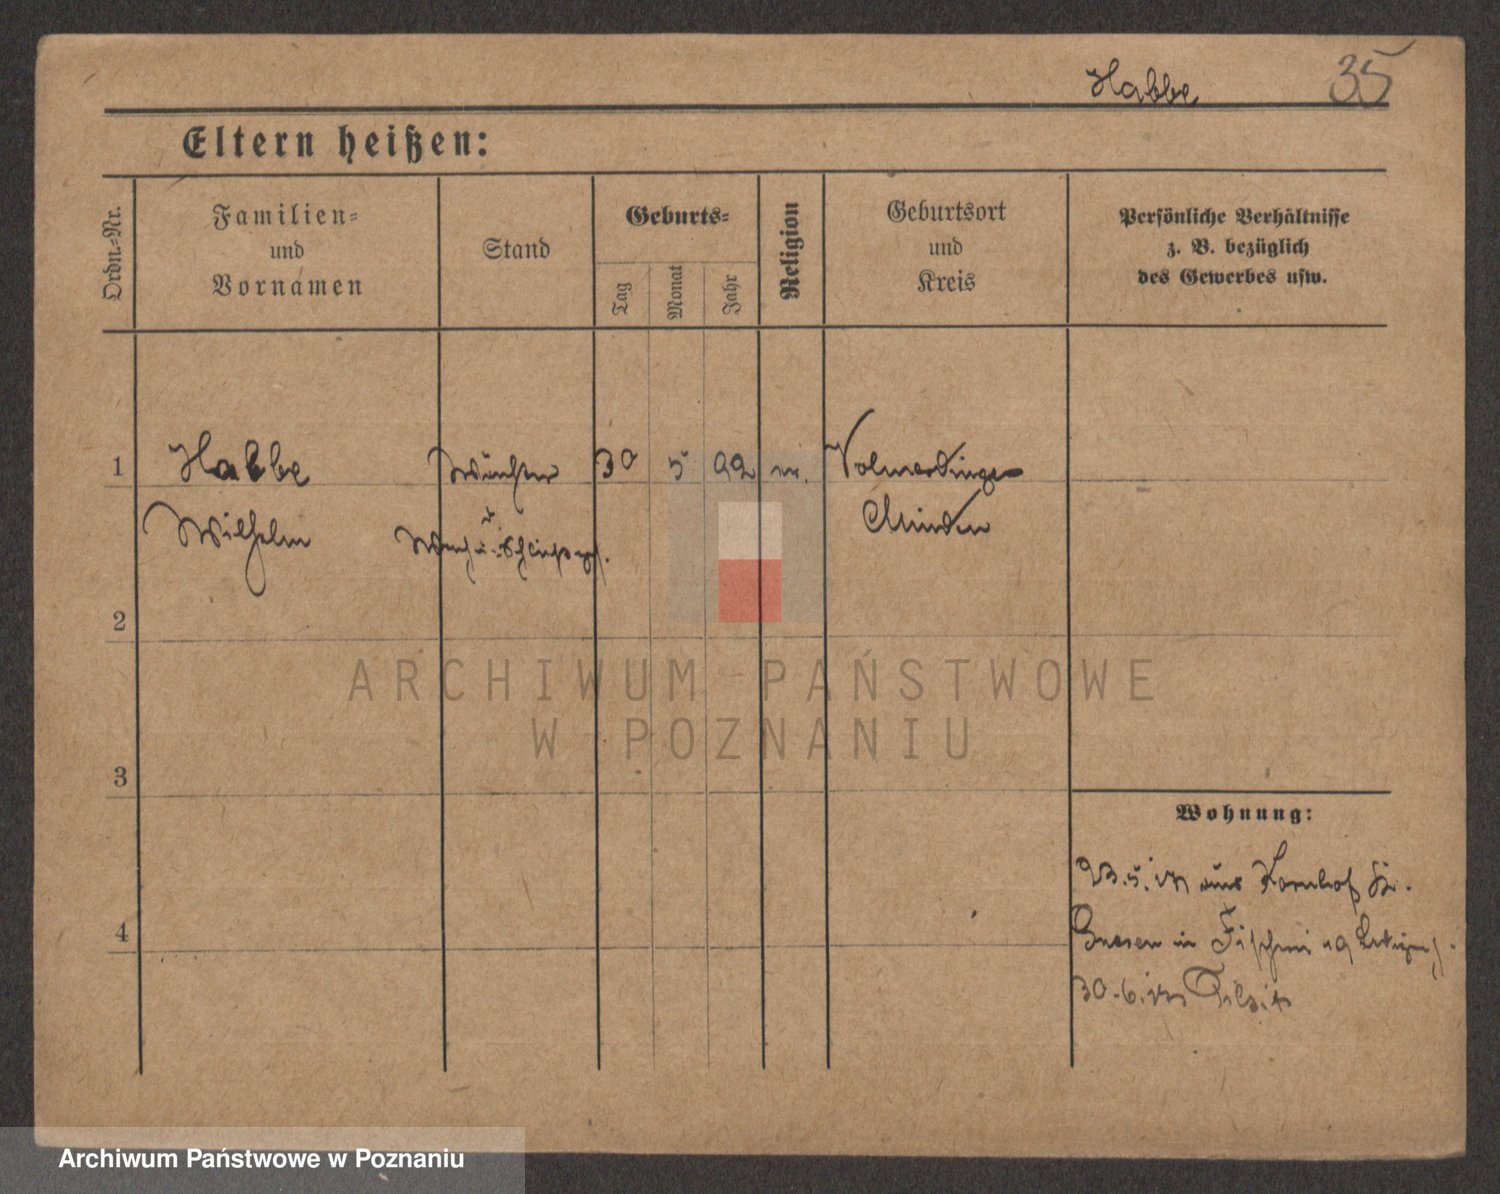 Habbe 35
Eltern heißen:
Ordn.-Nr.
Familien-
und
Vornamen
Stand
Geburts-
Tag
Monat
Jahr
Religion
Geburtsort
und
Kreis
Persönliche Verhältnisse
z. B. bezüglich
des Gewerbes usw.
1 Habbe Wächter 30 5 92 Volmerdingsen
Wilhelm Minden
2
ARCHIWUM PAŃSTWOWE
W POZNANIU
3
Wohnung:
23.5. aus Kornhof Kr.
4
Gnesen in
30.6. Tilsit
Archiwum Państwowe w Poznaniu